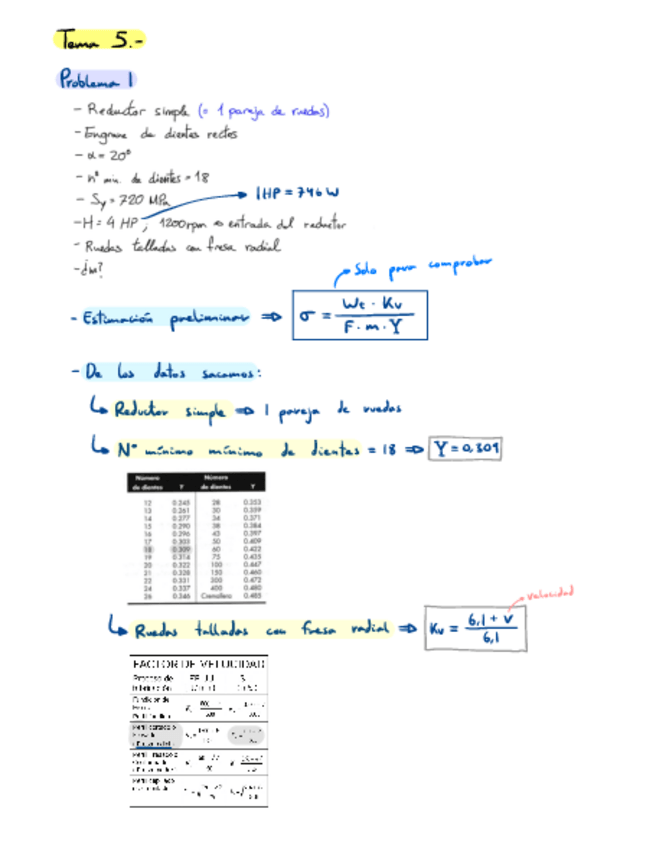 Tema 5.-
Problema 1
- Reductor simple (= 1 pareja de ruedas)
- Engrane de dientes rectos
- α = 20°
- nº min. de dientes = 18
- Sy = 720 MPa
1HP = 746 W
- H = 4 HP ; 1200rpm entrada del reductor
- Ruedas talladas con fresa radial
- ¿m?
Solo para comprobar
- Estimación preliminar ⇒ σ = Wt · Kv / F · m · Y
- De los datos sacamos:
↳ Reductor simple ⇒ 1 pareja de ruedas
↳ Nº mínimo mínimo de dientes = 18 ⇒ Y = 0,309
Número de dientes Y Número de dientes Y
12 0.245 28 0.353
13 0.261 30 0.359
14 0.277 34 0.371
15 0.290 38 0.384
16 0.296 43 0.397
17 0.303 50 0.409
18 0.309 60 0.422
19 0.314 75 0.435
20 0.322 100 0.447
21 0.328 150 0.460
22 0.331 300 0.472
24 0.337 400 0.480
26 0.346 Cremallera 0.485
velocidad
↳ Ruedas talladas con fresa radial ⇒ Kv = 6,1 + v / 6,1
FACTOR DE VELOCIDAD
Proceso de